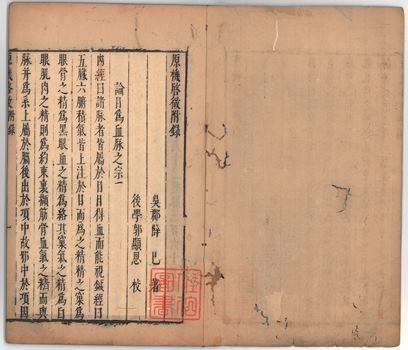 原機啓微附錄
吳郡薛己著
後學郭顯恩校
論目爲血脉之宗一
內經曰諸脉者皆屬於目目得血而能視鍼經曰
五臟六腑精氣皆上注於目而爲之精精之窠爲
眼骨之精爲黑眼血之精爲絡其窠氣之精爲白
眼肌肉之精則爲約束裹擷筋骨血氣之精而與
脉并爲系上屬於腦後出於項中故邪中於項因
原機啓微附錄